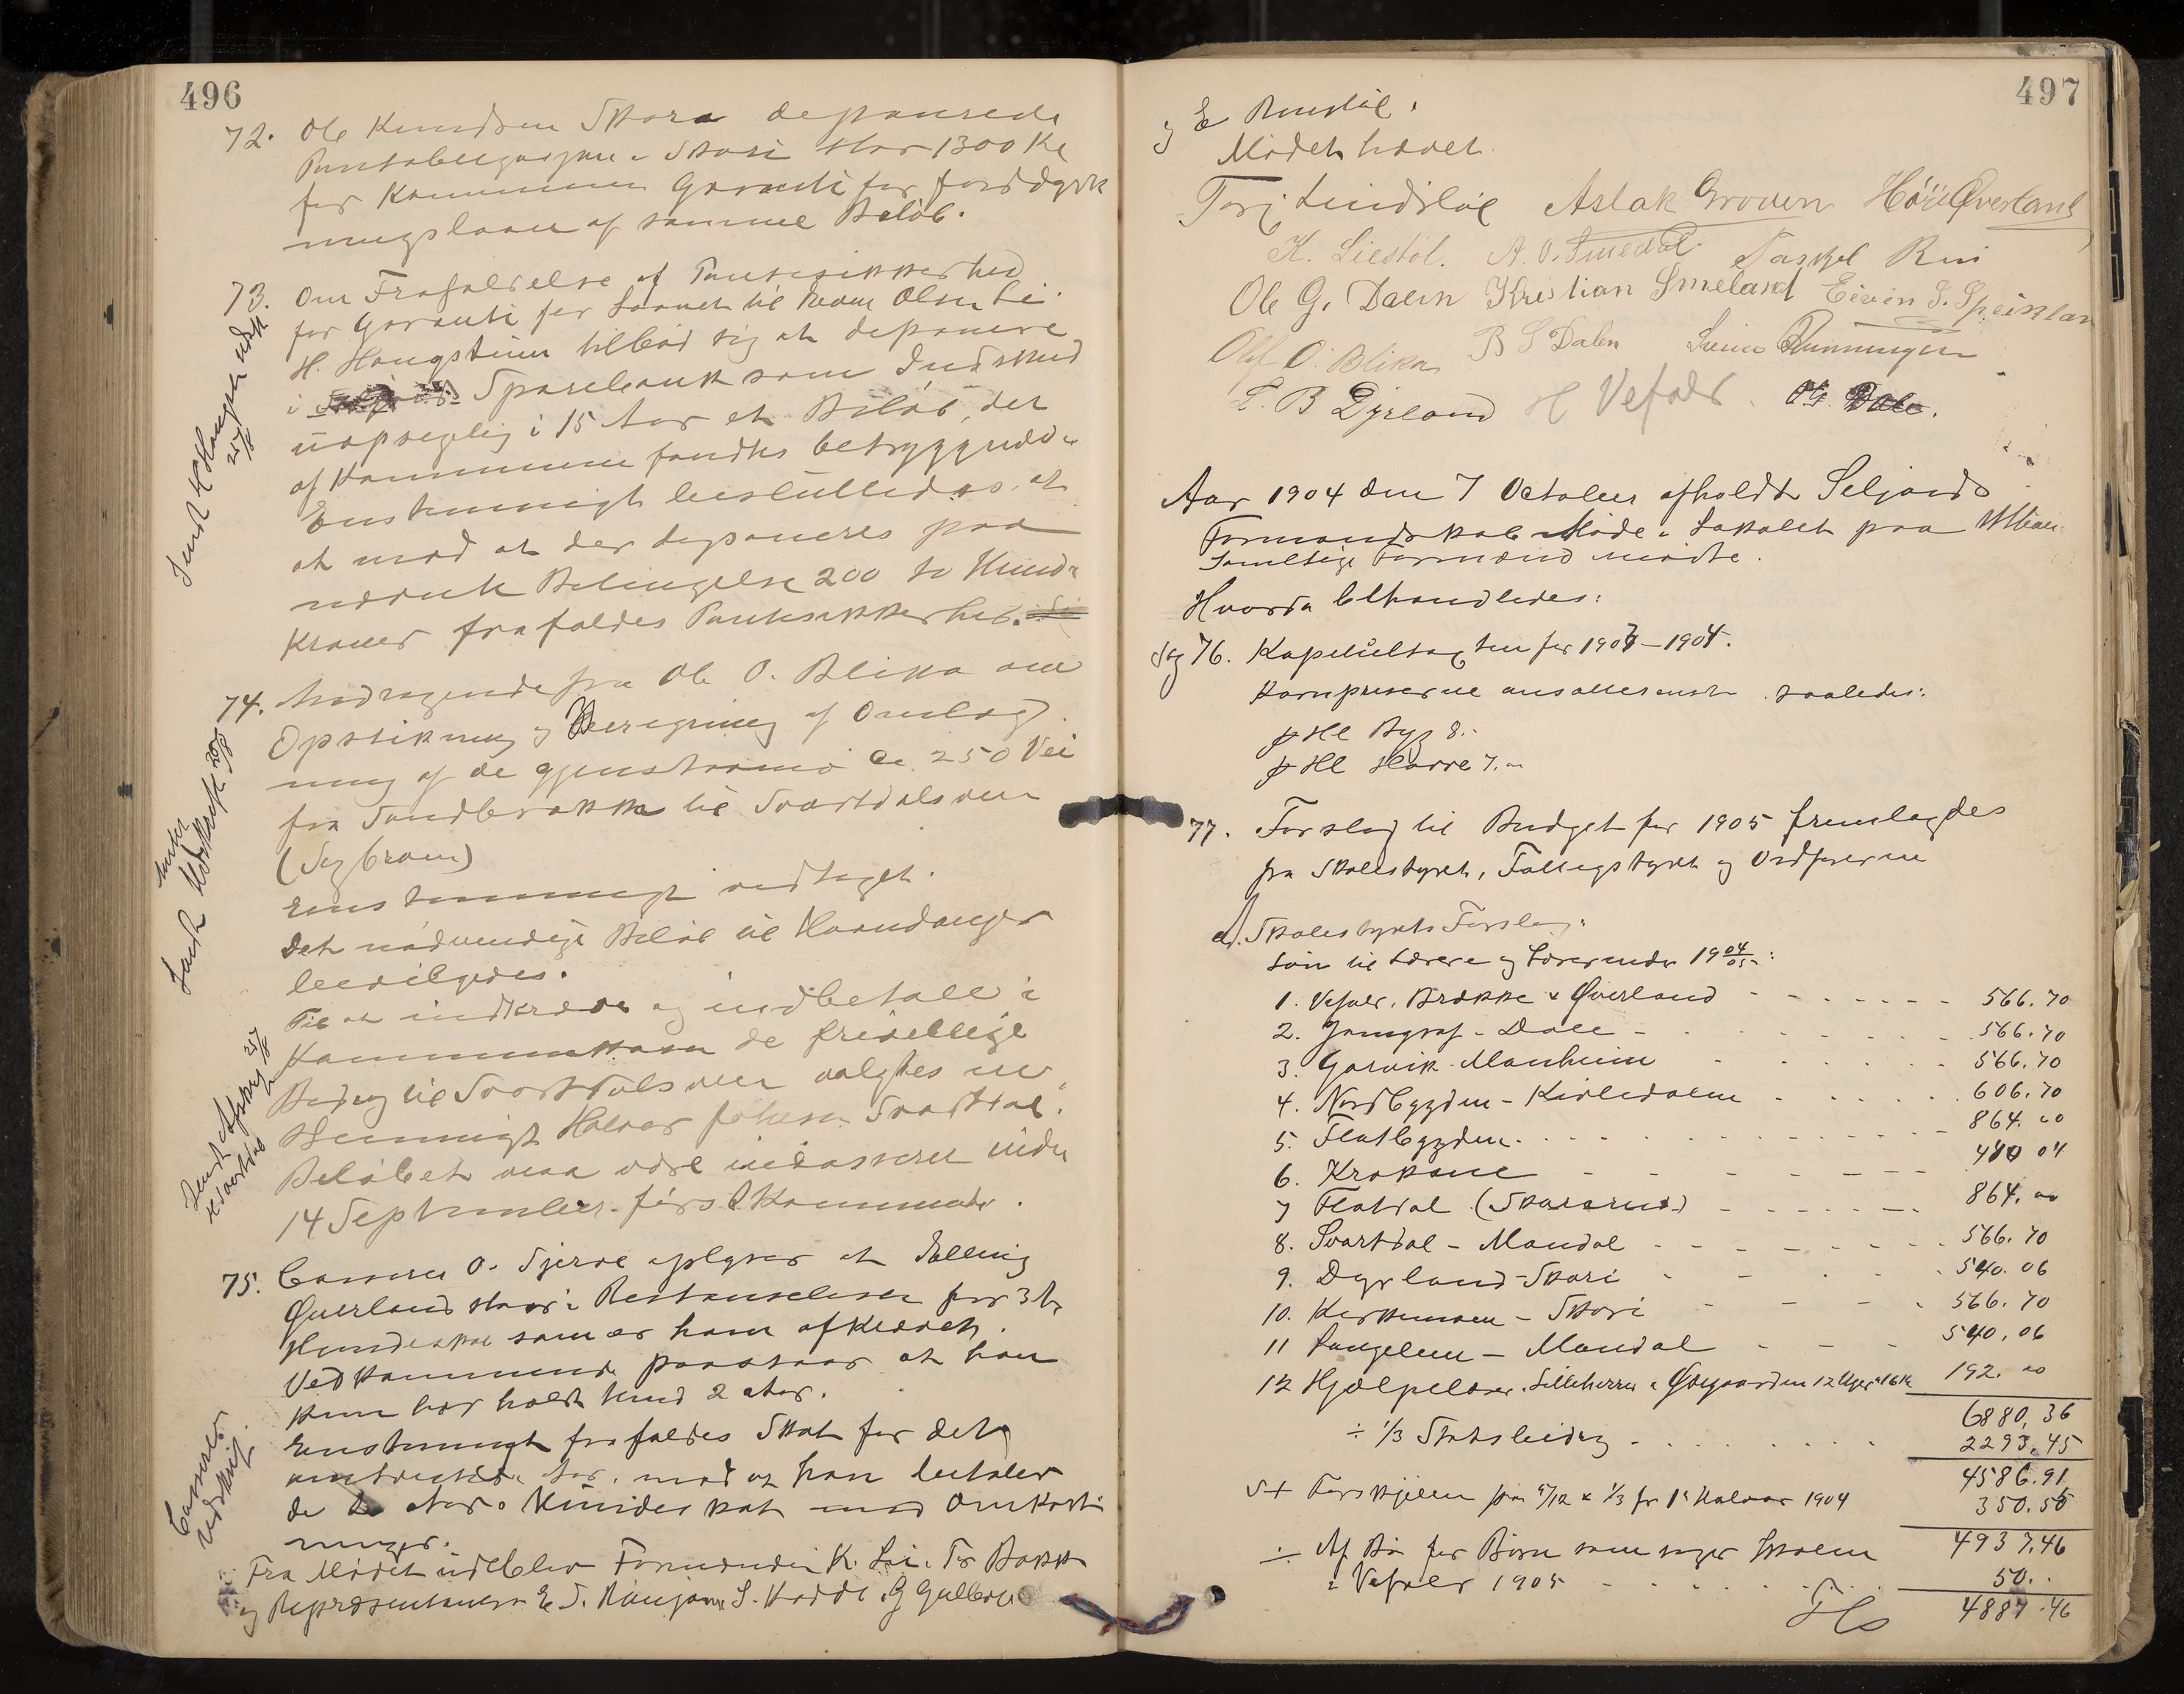 496
72. Ole Knudsen Skora deponerede
Pantobligasjon i Skori stor 1300 Kr
for Kommunens Garanti for jorddyrk
ningslaan af samme Beløb.
73. Om Frafaldelse af Pantesikkerhed
for Garanti for Laanet til Olsen Li.
H. Haugstuen tilbød sig at deponere
i Sparebank som Indskud
uopsigelig i 15 Aar et Beløb, der
af Kommunen fandtes betryggende.
Enstemmigt besluttedes at
at mod at der deponeres paa
nævnte Betingelse 200 to Hund.
Kroner frafaldes Pantesikkerhed.
Sendt H Haugen Udsk. 25/8
74. Andragende fra Ole O. Blika om
Opstikning og Beregning af Omlæg
ning af de gjenstaaende ca. 250 Vei
fra Sandbrække til Svartdalsveien
(Seg braain)
Enstemmigt vedtaget.
Det nødvendige Beløb til
bevilgedes.
Til at indkræve og indbetale i
Kommunekassen de frivillige
Bidrag til Svartdalsveien valgtes en
stemmigt Halvor Johnsen Svartdal.
Beløbet maa være indkasseret inden
14 September førstkommende.
Sendt Udskrift 25/8
Sendt Afskrift 25/8
H. Svartdal
75. Casserer O. Tjerne oplyser at Tellung
Øverland staar i Restanselisten for 3 Aars
Hundeskat som er ham afkrævet.
Vedkommende paastaar at han
kun har holdt hund 2 Aar.
Enstemmigt frafaldes Skat for det
omtvistede Aar, mod at han betaler
de to Aars Hundeskat med Omkost
ninger.
Casserer Udskrift.
Fra Mødet udeblev Formændene K. Lie, Tr Bakke
og Repræsentanterne E S. S. Kadde, G Gullbera
497
og E Rinstøl.
Mødet hævet.
Torj Lindsløl Aslak Groven Høie Øverland
K. Liestøl. A. O. Smedal Taskjel Rui
Ole G. Dalen Kristian Smeland Eivin S. Speisland
Olef O. Blika B S Dalen Svein Rønningen
T. B Dyrland H Vefaler. OG Dale.
Aar 1904 den 7 October afholdt Seljords
Formandskab Møde i Lokalet paa Utbøen
Samtlige Formænd mødte.
Hvorda behandledes:
Sag 76. Kapitelstaxten for 1903–1904.
Kornpriserne ansattes saaledes:
pr Hl Byg 8.-
pr Hl Havre 7.-
77. Forslag til Budget for 1905 fremlagdes
fra Skolestyret, Fattigstyret og Ordføreren
a). Skolestyrets Forslag:
Løn til Lærere og Lærerinder 1904/05:
1. Vefaler, Brække & Øverland 566.70
2. Jomgraf - Dale 566.70
3. Garvik - Manheim 566.70
4. Nordbygden - Kivledalen 606.70
5. Flatbygden 864.00
6. Krokane 480 04
7 Flatdal (Skararna) 864.00
8. Svartdal - Mandal 566.70
9. Dyrland - Skori 540.06
10. Kirkemoen - Skori 566.70
11 Langelien - Mandal 540.06
12 Hjælpelærer i Lilleherra i Øigaarden 12 Uger à 16 Kr 192.00
6880,36
÷ 1/3 Statsbidrag 2293.45
4586.91
+ Forskjellen paa 5/12 & 1/3 for 1ste Halvaar 1904 350.55
4937.46
÷ Af Bø for Børn som søger Skolen
i Vefaler 1905 50..
4887.46